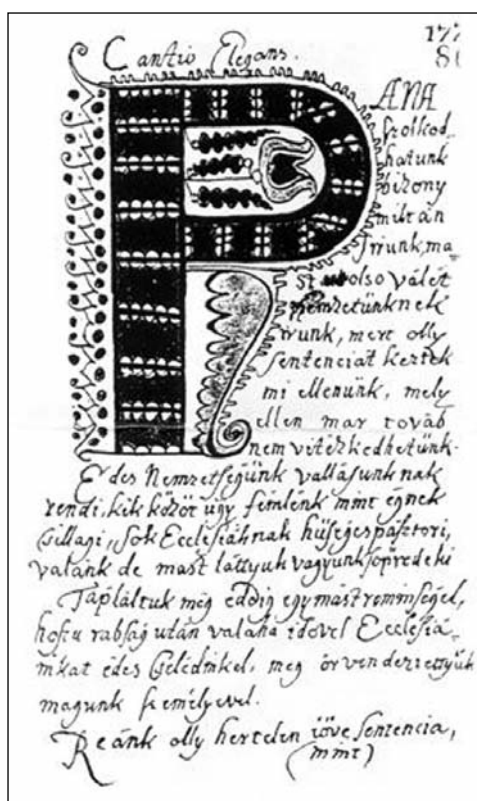 Cantio Elegans.
177
80
PANA
szolkod
hatunk
bizony
miltán
sriunk, ma
st utolso válét
Nemzetünknek
irunk, mert olly
sentenciát kertek
mi ellenünk, mely
ellen mar továb
nem vitézkedhetünk.
Edes Nemzetségünk vallásunk nak
rendi, kik közöt ugy fenilénk mint égnek
csillagi, sok Eccleſiáknak hüséges páſztori,
valánk de maſt láttyuk vagyunk söpredeki
Tápláltuk mig eddig egymáſt remmségel,
hoſzu rabság után valaha idövel Eccleſiá-
inkat édes cselédinkel, meg örvendeztettyük
magunk ſzemélyevel.
Reánk olly hertelen iöve ſentencia,
(mint)